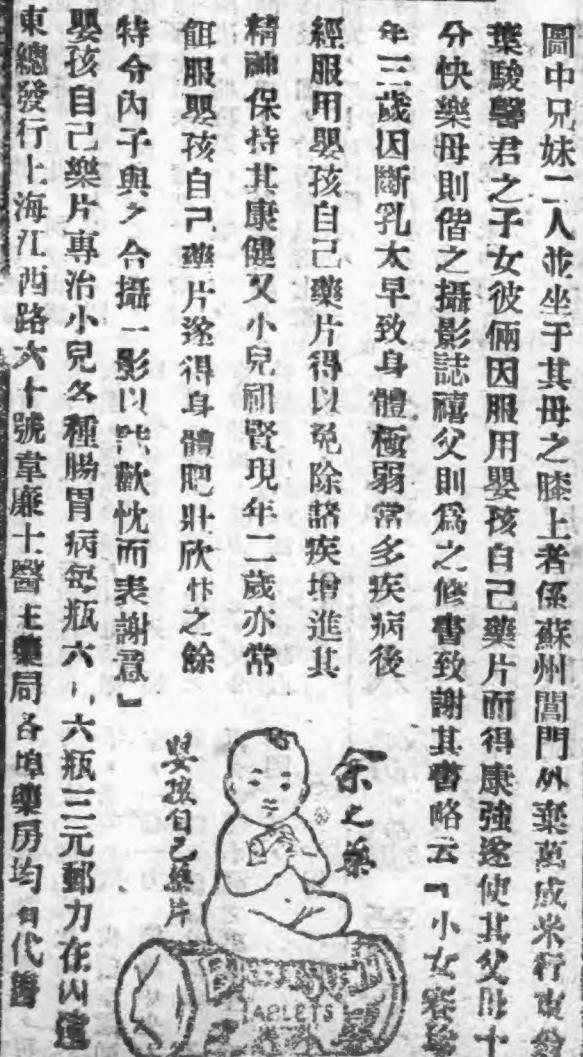 圖中兄妹二人並坐于其母之膝上者係蘇州閶門外葉萬成米行東翁
葉駿馨君之子女彼倆因服用嬰孩自己藥片而得康強遂使其父母十
分快樂母則偕之攝影誌禧父則為之修書致謝其書略云『小女
年三歲因斷乳太早致身體極弱常多疾病後
經服用嬰孩自己藥片得以免除諸疾增進其
精神保持其康健又小兒祖賢現年二歲亦常
餌服嬰孩自己藥片遂得身體肥壯欣忭之餘
特令內子與之合攝一影以誌歡忱而表謝意』
嬰孩自己藥片專治小兒各種腸胃病每瓶六 六瓶三元郵力在內遠
東總發行上海江西路六十號韋廉士醫生藥局各埠藥房均有代售
余之藥
嬰孩自己藥片
TABLETS